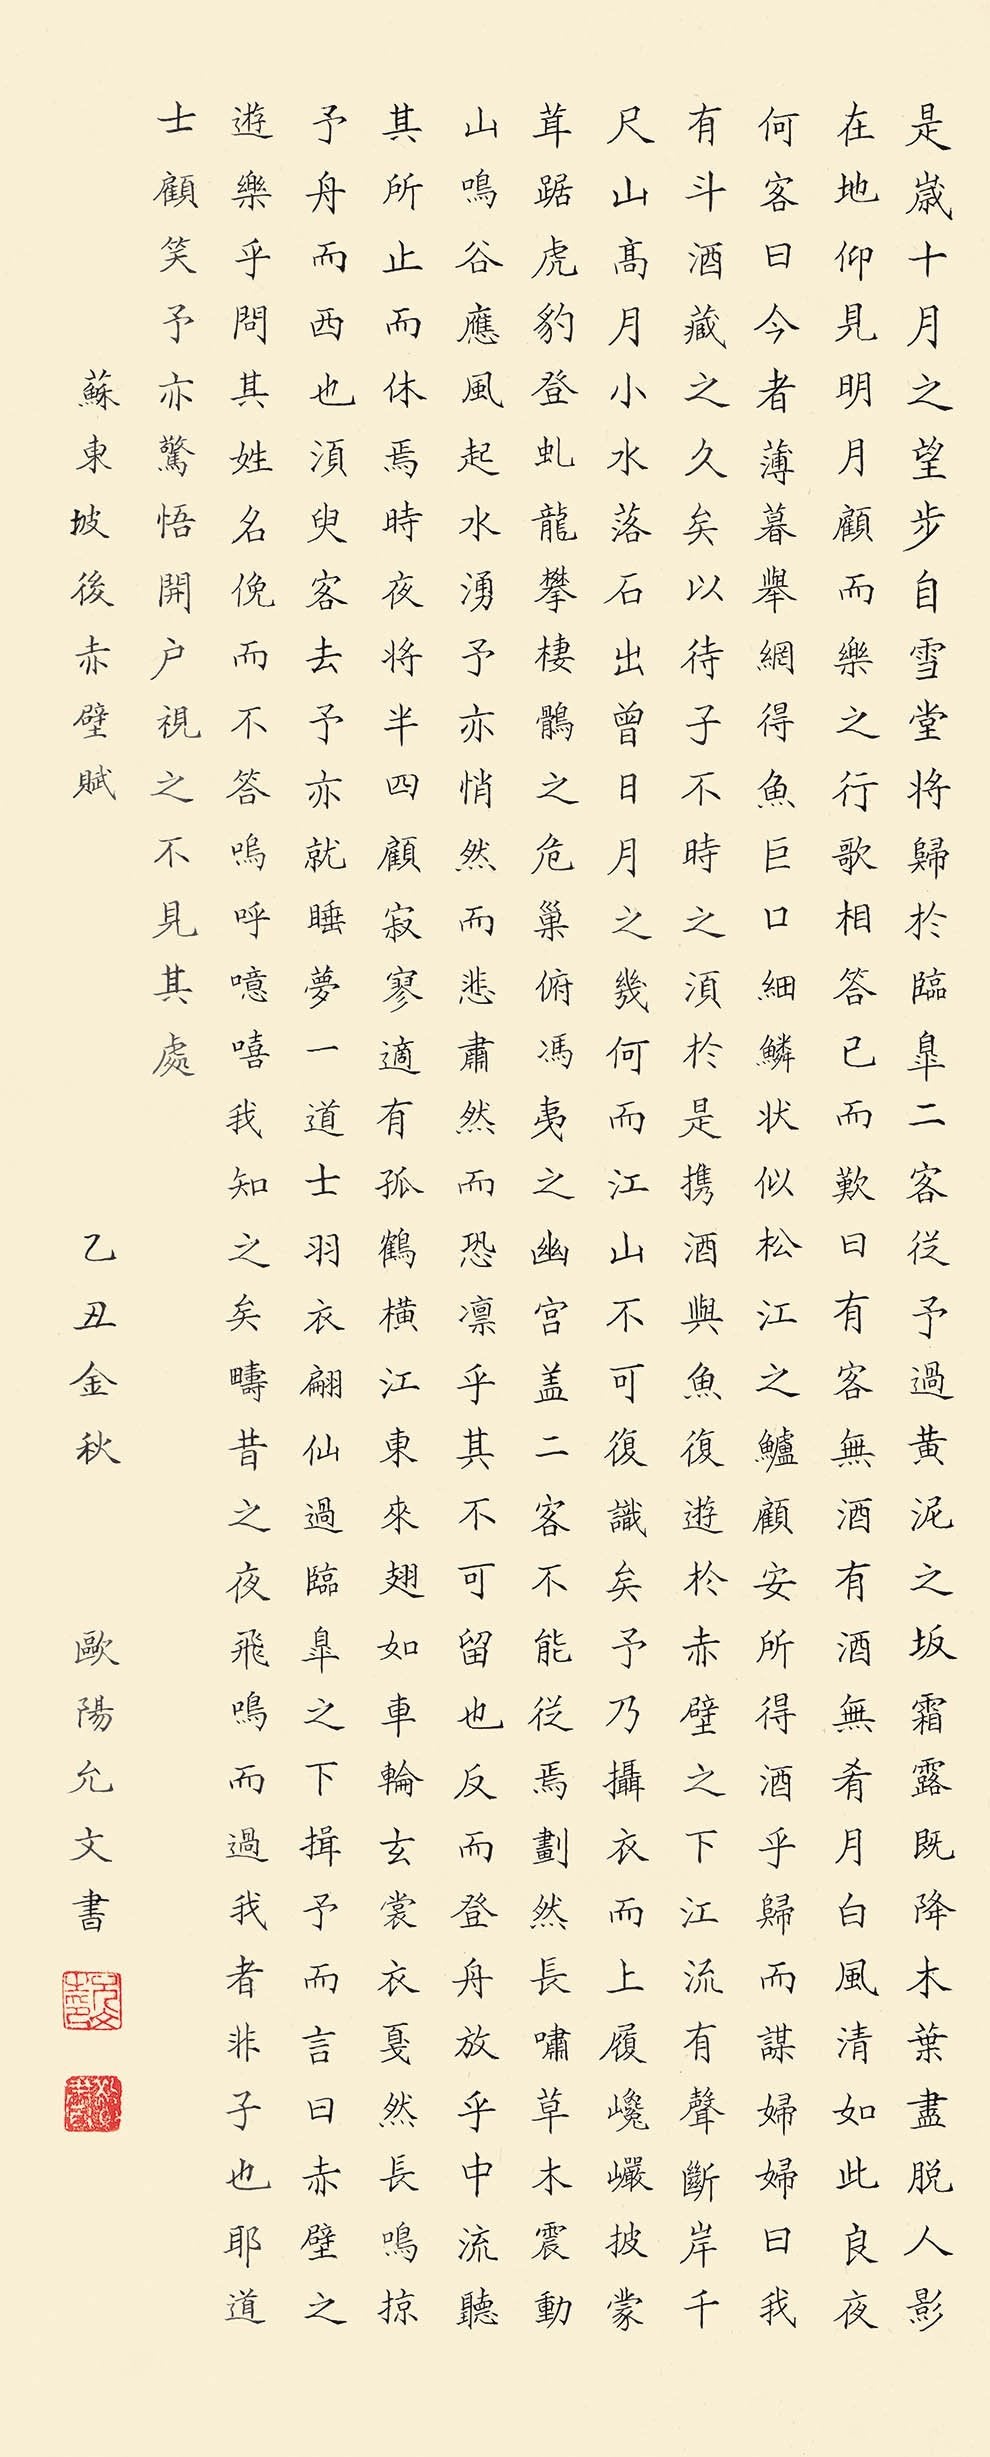 是歳十月之望步自雪堂将歸於臨臯二客従予過黃泥之坂霜露既降木葉盡脱人影
在地仰見明月顧而樂之行歌相答已而歎曰有客無酒有酒無肴月白風清如此良夜
何客曰今者薄暮舉網得魚巨口細鱗状似松江之鱸顧安所得酒乎歸而謀婦婦曰我
有斗酒藏之久矣以待子不時之湏於是携酒與魚復遊於赤壁之下江流有聲斷岸千
尺山髙月小水落石出曾日月之幾何而江山不可復識矣予乃攝衣而上履巉巖披蒙
茸踞虎豹登虬龍攀棲鶻之危巢俯馮夷之幽宮盖二客不能従焉劃然長嘯草木震動
山鳴谷應風起水湧予亦悄然而悲肅然而恐凛乎其不可留也反而登舟放乎中流聽
其所止而休焉時夜将半四顧寂寥適有孤鶴橫江東來翅如車輪玄裳衣戛然長鳴掠
予舟而西也湏臾客去予亦就睡夢一道士羽衣翩仙過臨臯之下揖予而言曰赤壁之
遊樂乎問其姓名俛而不答嗚呼噫嘻我知之矣疇昔之夜飛鳴而過我者非子也耶道
士顧笑予亦驚悟開户視之不見其處
蘇東坡後赤壁賦 乙丑金秋 歐陽允文書